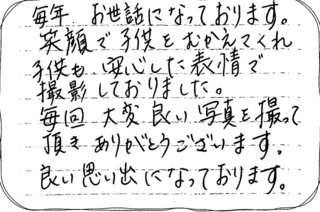 毎年、お世話になっております。
笑顔で子供をむかえてくれ
子供も安心した表情で
撮影しておりました。
毎回大変良い写真を撮って
頂きありがとうございます。
良い思い出になっております。